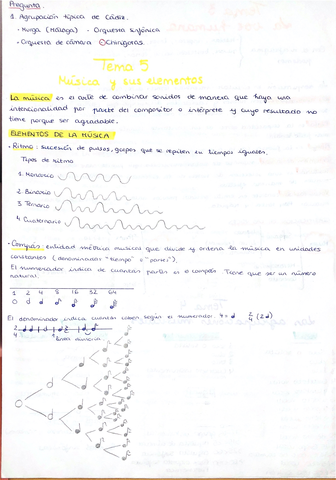 Pregunta.
1. Agrupación típica de Cádiz.
• Murga (Málaga) • Orquesta sinfónica
• Orquesta de cámara Chirigotas.
Tema 5
Música y sus elementos
La música es el arte de combinar sonidos de manera que haya una
intencionalidad por parte del compositor o intérprete y cuyo resultado no
tiene porque ser agradable.
ELEMENTOS DE LA MÚSICA
• Ritmo: sucesión de pulsos, golpes que se repiten en tiempos iguales.
Tipos de ritmo
1. Monario
2. Binario
3. Ternario
4. Cuaternario
• Compás: entidad métrica musical que divide y ordena la música en unidades
constantes (denominadas "tiempo" o "partes").
El numerador indica de cuantas partes es el compás. Tiene que ser un número
natural.
1 2 4 8 16 32 64
El denominador indica cuantas caben según el numerador. 4 = 2/4 (2)
2
4
línea divisoria